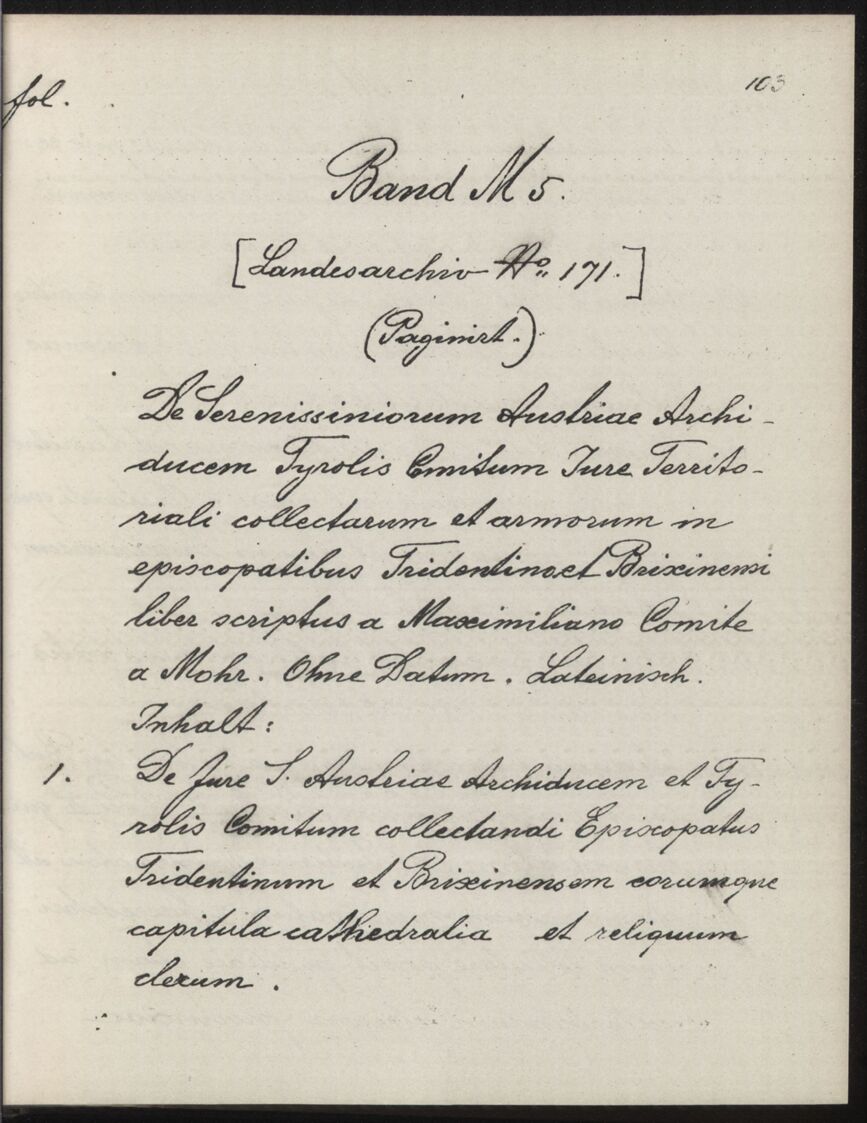 103
fol.
Band M 5.
[Landesarchiv No. 171.]
(Paginirt.)
De Serenissiniorum Austriae Archi-
ducem Tyrolis Comitum Jure Territo-
riali collectarum et armorum in
episcopatibus Tridentino et Brixinensi
liber scriptus a Maximiliano Comite
a Mohr. Ohne Datum. Lateinisch.
Inhalt:
1. De Jure S. Austriae Archiducem et Ty-
rolis Comitum collectandi Episcopatus
Tridentinum et Brixinensem eorumque
capitula cathedralia et reliquum
clerum.